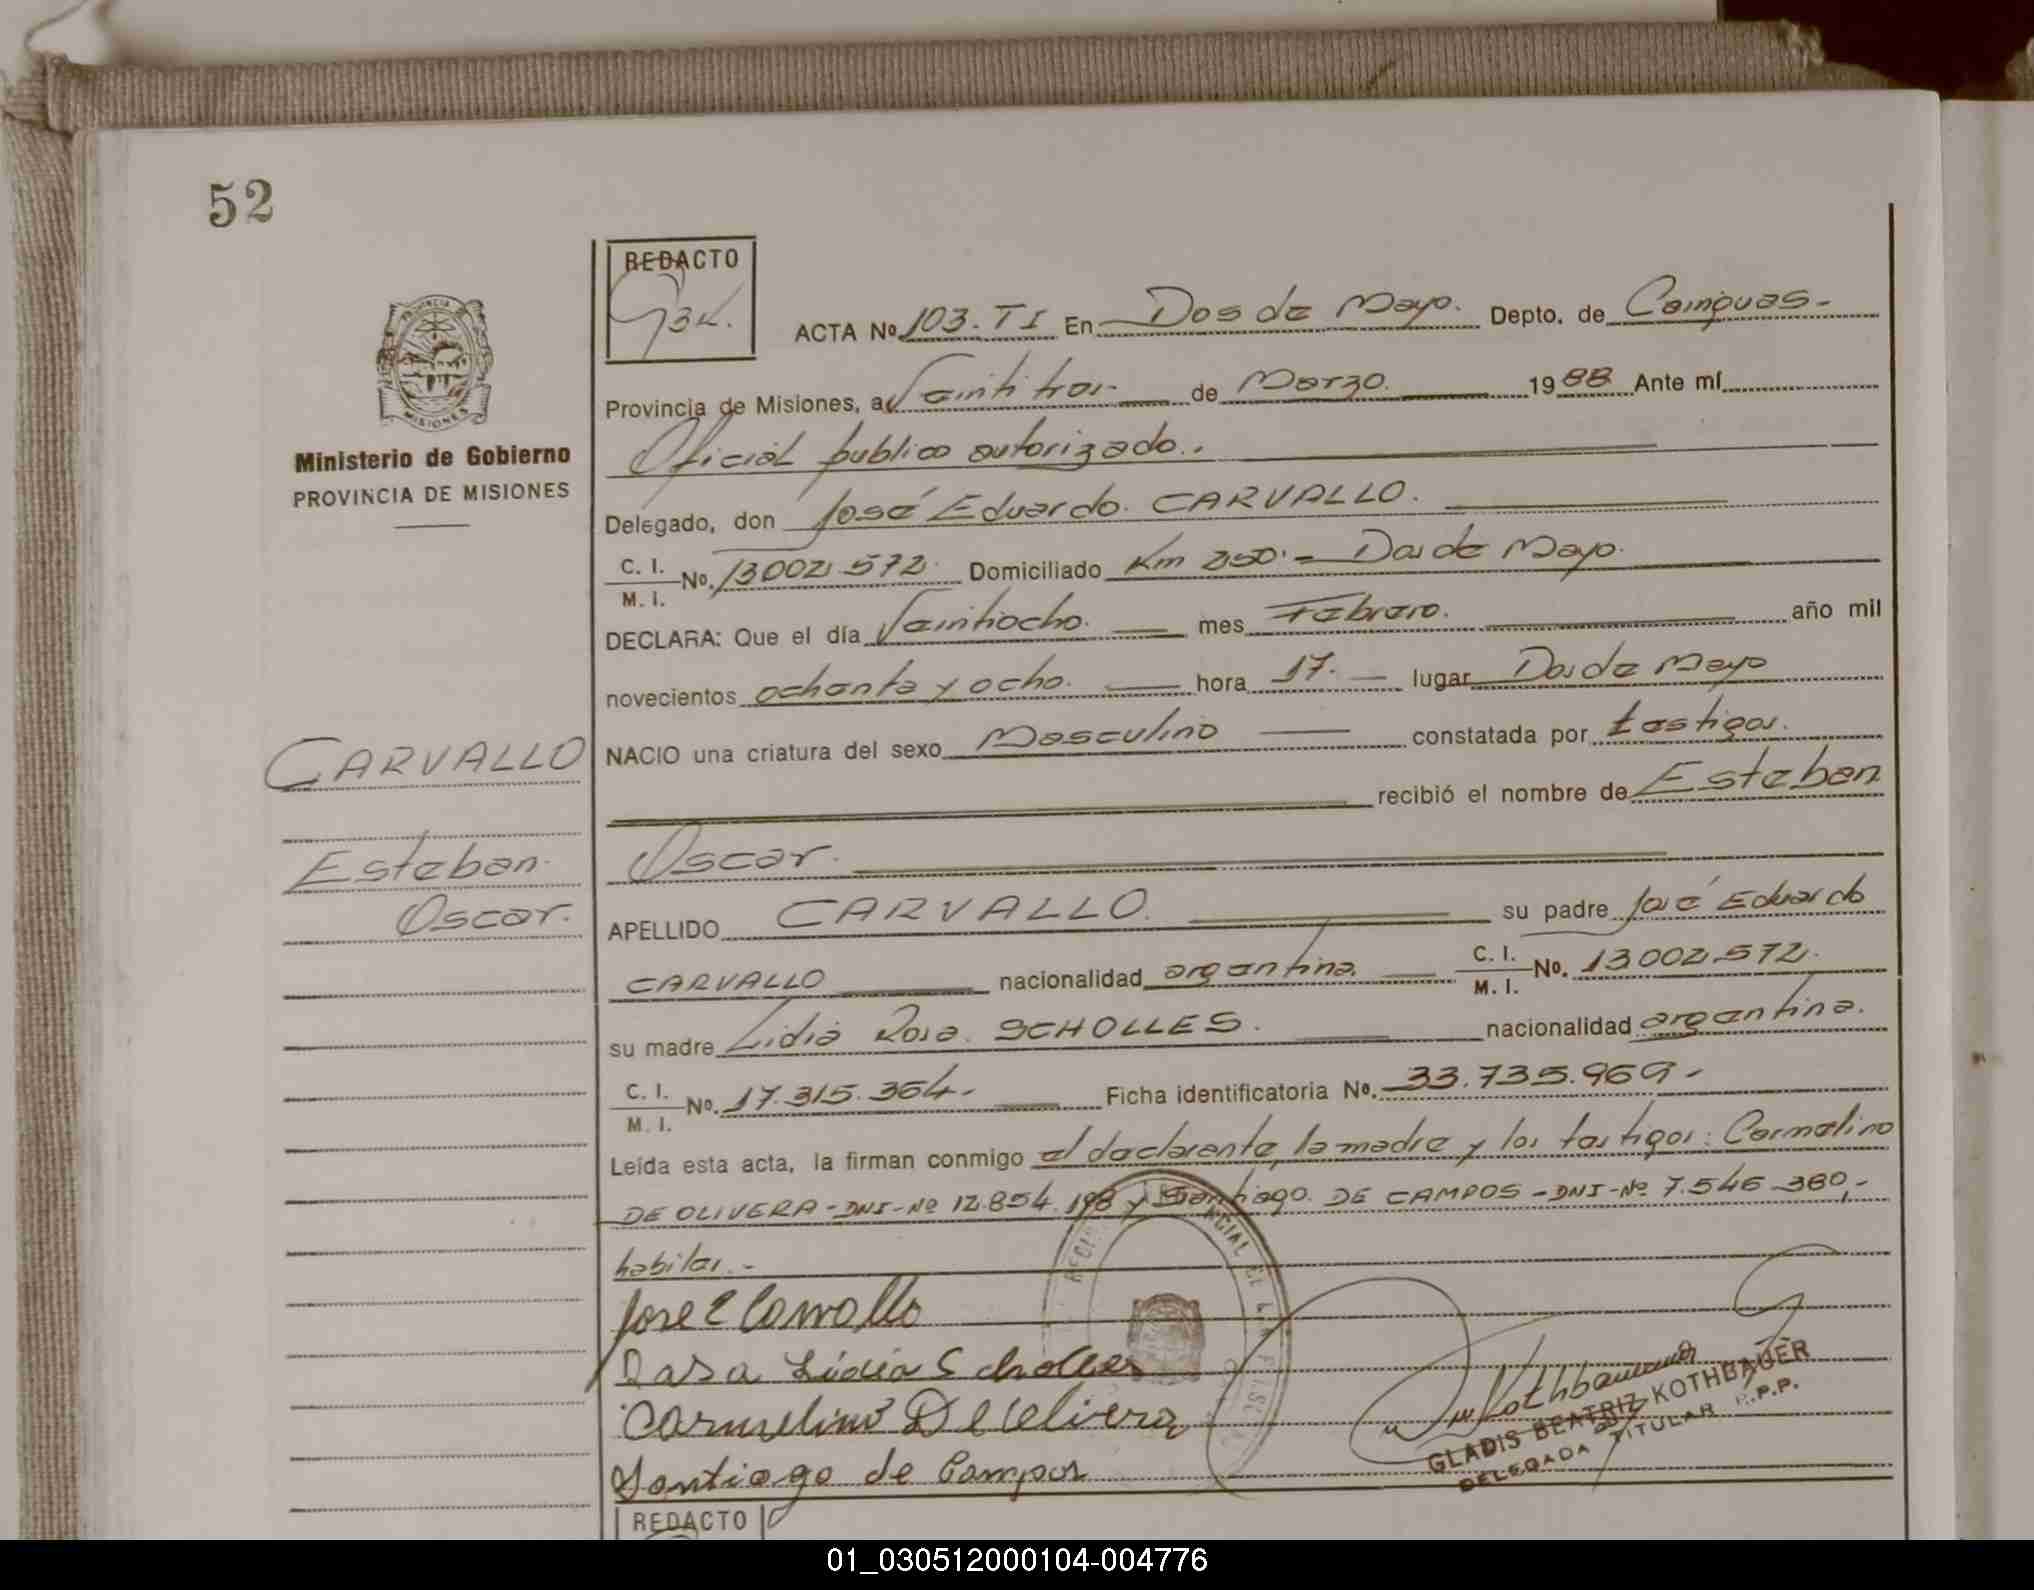 52
PROVINCIA
MISIONES
Ministerio de Gobierno
PROVINCIA DE MISIONES
CARVALLO
Esteban.
Oscar.
REDACTO
ACTA No 103. TI En Dos de Mayo. Depto. de Cainguas.-
Provincia de Misiones, a Veintitres.- de Marzo. 1988 Ante mí
Oficial publico autorizado..
Delegado, don José Eduardo. CARVALLO.
C. I.
M. I. No. 13.002.572. Domiciliado Km 250.- Dos de Mayo.
DECLARA: Que el día Veintiocho. mes Febrero. año mil
novecientos ochenta y ocho. hora 17. lugar Dos de Mayo
NACIO una criatura del sexo Masculino constatada por testigos.
recibió el nombre de Esteban
Oscar.
APELLIDO CARVALLO. su padre José Eduardo
CARVALLO nacionalidad argentina. C. I.
M. I. No. 13.002.572.
su madre Lidia Rosa. SCHOLLES. nacionalidad argentina.
C. I.
M. I. No. 17.315.364.- Ficha identificatoria No. 33.735.969.-
Leída esta acta, la firman conmigo el declarante, la madre y los testigos: Carmelino
DE OLIVERA-DNI-Nº 12.854.198 y Santiago. DE CAMPOS-DNI-Nº 7.546.380,-
habiles.-
Jose E Carvallo
Rosa Lidia Scholles
Carmelino De Olivera
Santiago de Campos
Kothbauer
GLADIS BEATRIZ KOTHBAUER
DELEGADA TITULAR R.P.P.
REDACTO
01_030512000104-004776